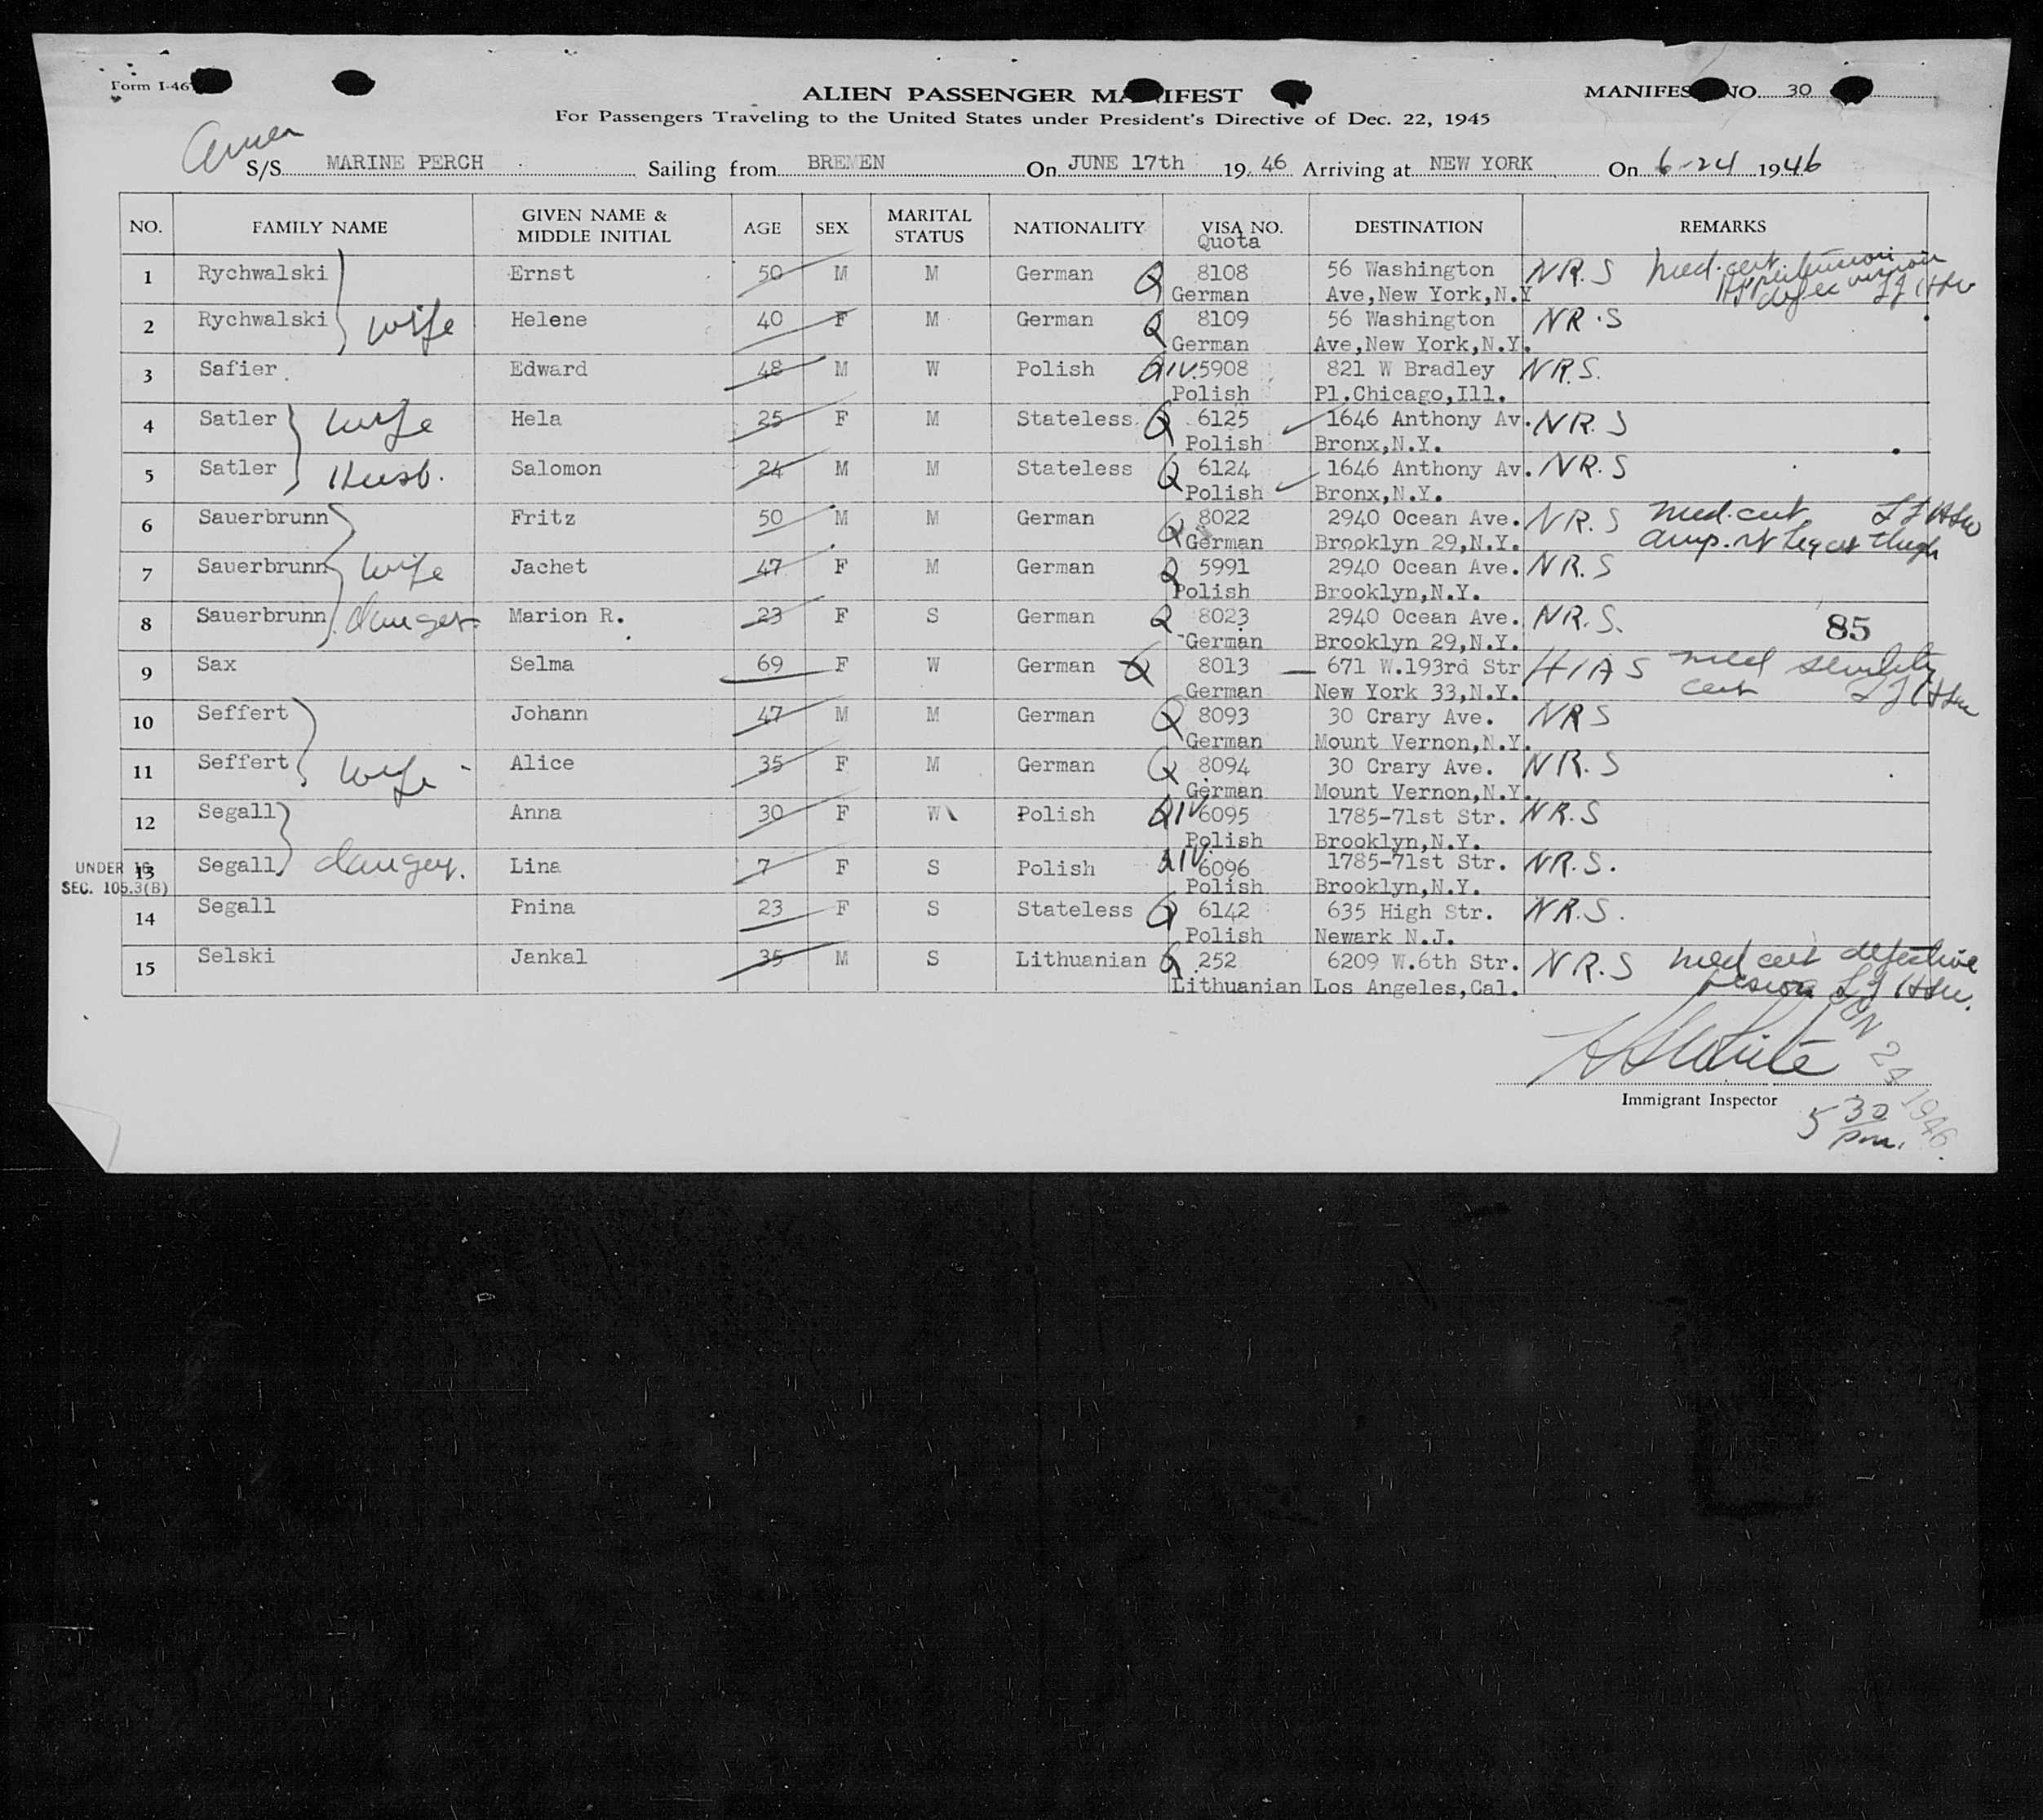 Form I-46
ALIEN PASSENGER MANIFEST
MANIFEST NO. 30
For Passengers Traveling to the United States under President's Directive of Dec. 22, 1945
S/S MARINE PERCH Sailing from BREMEN On JUNE 17th 19 46 Arriving at NEW YORK On 6-24 1946
NO. FAMILY NAME GIVEN NAME & MIDDLE INITIAL AGE SEX MARITAL STATUS NATIONALITY VISA NO. Quota DESTINATION REMARKS
1 Rychwalski Ernst 50 M M German Q 8108 56 Washington N.R.S Med. cert.
German Ave,New York,N.Y
2 Rychwalski wife Helene 40 F M German Q 8109 56 Washington NR.S
German Ave,New York,N.Y.
3 Safier Edward 48 M W Polish QIV.5908 821 W Bradley NR.S.
Polish Pl.Chicago,Ill.
4 Satler wife Hela 25 F M Stateless Q 6125 1646 Anthony Av. NR.S
Polish Bronx,N.Y.
5 Satler Husb. Salomon 24 M M Stateless Q 6124 1646 Anthony Av. NR.S
Polish Bronx,N.Y.
6 Sauerbrunn Fritz 50 M M German Q 8022 2940 Ocean Ave. NR.S med. cert
German Brooklyn 29,N.Y. amp. rt leg at thigh
7 Sauerbrunn wife Jachet 47 F M German Q 5991 2940 Ocean Ave. NR.S
Polish Brooklyn,N.Y.
8 Sauerbrunn Marion R. 23 F S German Q 8023 2940 Ocean Ave. NR.S. 85
German Brooklyn 29,N.Y.
9 Sax Selma 69 F W German Q 8013 671 W.193rd Str HIAS med senility
German New York 33,N.Y. cert
10 Seffert Johann 47 M M German Q 8093 30 Crary Ave. NRS
German Mount Vernon,N.Y.
11 Seffert wife Alice 35 F M German Q 8094 30 Crary Ave. NR.S
German Mount Vernon,N.Y.
12 Segall Anna 30 F W Polish QIV 6095 1785-71st Str. NR.S
Polish Brooklyn,N.Y.
UNDER 16
SEC. 105.3(B)
13 Segall Lina 7 F S Polish QIV. 6096 1785-71st Str. NR.S.
Polish Brooklyn,N.Y.
14 Segall Pnina 23 F S Stateless Q 6142 635 High Str. NR.S.
Polish Newark N.J.
15 Selski Jankal 35 M S Lithuanian Q 252 6209 W.6th Str. NR.S med cert defective
Lithuanian Los Angeles,Cal. vision
JUN 24 1946
Immigrant Inspector
5 30 pm.